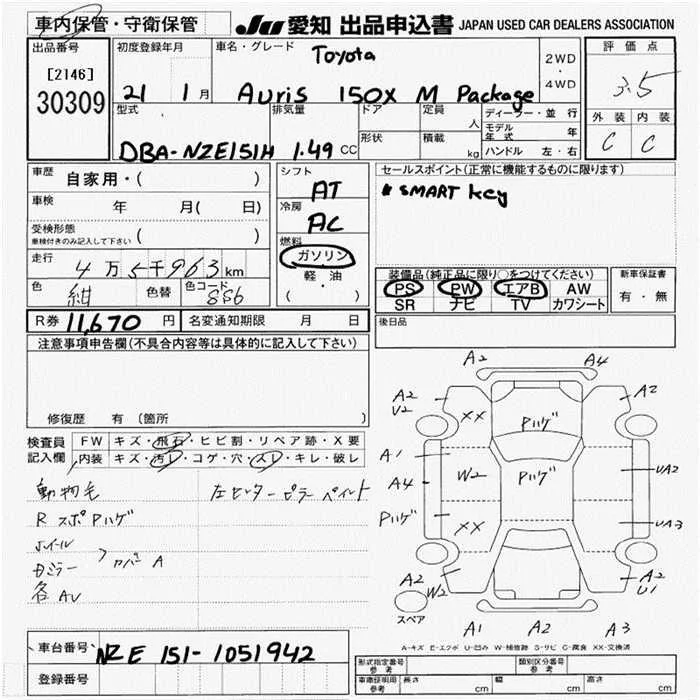 車内保管・守衛保管
JU 愛知 出品申込書 JAPAN USED CAR DEALERS ASSOCIATION
出品番号
[2146]
30309
初度登録年月
21 1月
車名・グレード
Toyota
Auris 150X M Package
2WD
・
4WD
評価点
3.5
外装 内装
C C
型式
DBA-NZE151H
排気量
1.49 CC
ドア
形状
定員
人
積載
kg
ディーラー・並行
モデル年式 年
ハンドル 左・右
車歴 自家用・( )
車検 年 月( 日)
受検形態
車検付きのみ記入して下さい ( )
走行 4万5千963km
色 紺 色替 色コード 8S6
シフト
AT
冷房
AC
燃料
ガソリン
・
軽・油
( ・ )
セールスポイント(正常に機能するものに限ります)
SMART key
装備品(純正品に限り○をつけてください)
PS PW エアB AW
SR ナビ TV カワシート
新車保証書
有・無
後日品
R券 11,670 円 名変通知期限 月 日
注意事項申告欄(不具合内容等は具体的に記入して下さい)
修復歴 有 〔箇所 〕
検査員記入欄
FW キズ・飛石・ヒビ割・リペア跡・X要
内装 キズ・汚レ・コゲ・穴・スレ・キレ・破レ
動物毛 左センターピラー ペイント
R スポPハゲ
ホイール
カバー A
各AU
A2 A4
A2 U2 XX Pハゲ A2
A1 W2 Pハゲ UA2
A4
Pハゲ XX UA3
A2 W2 A2 U1
スペア
A1 A2 A3
A-キズ E-エクボ U-凹み W-補修跡 S-サビ C-腐食 XX-交換済
車台番号 NZE 151-1051942
登録番号
形式指定番号 参考 類別区分番号 参考
車庫証明用 参考 長さ cm 幅 cm 高さ cm